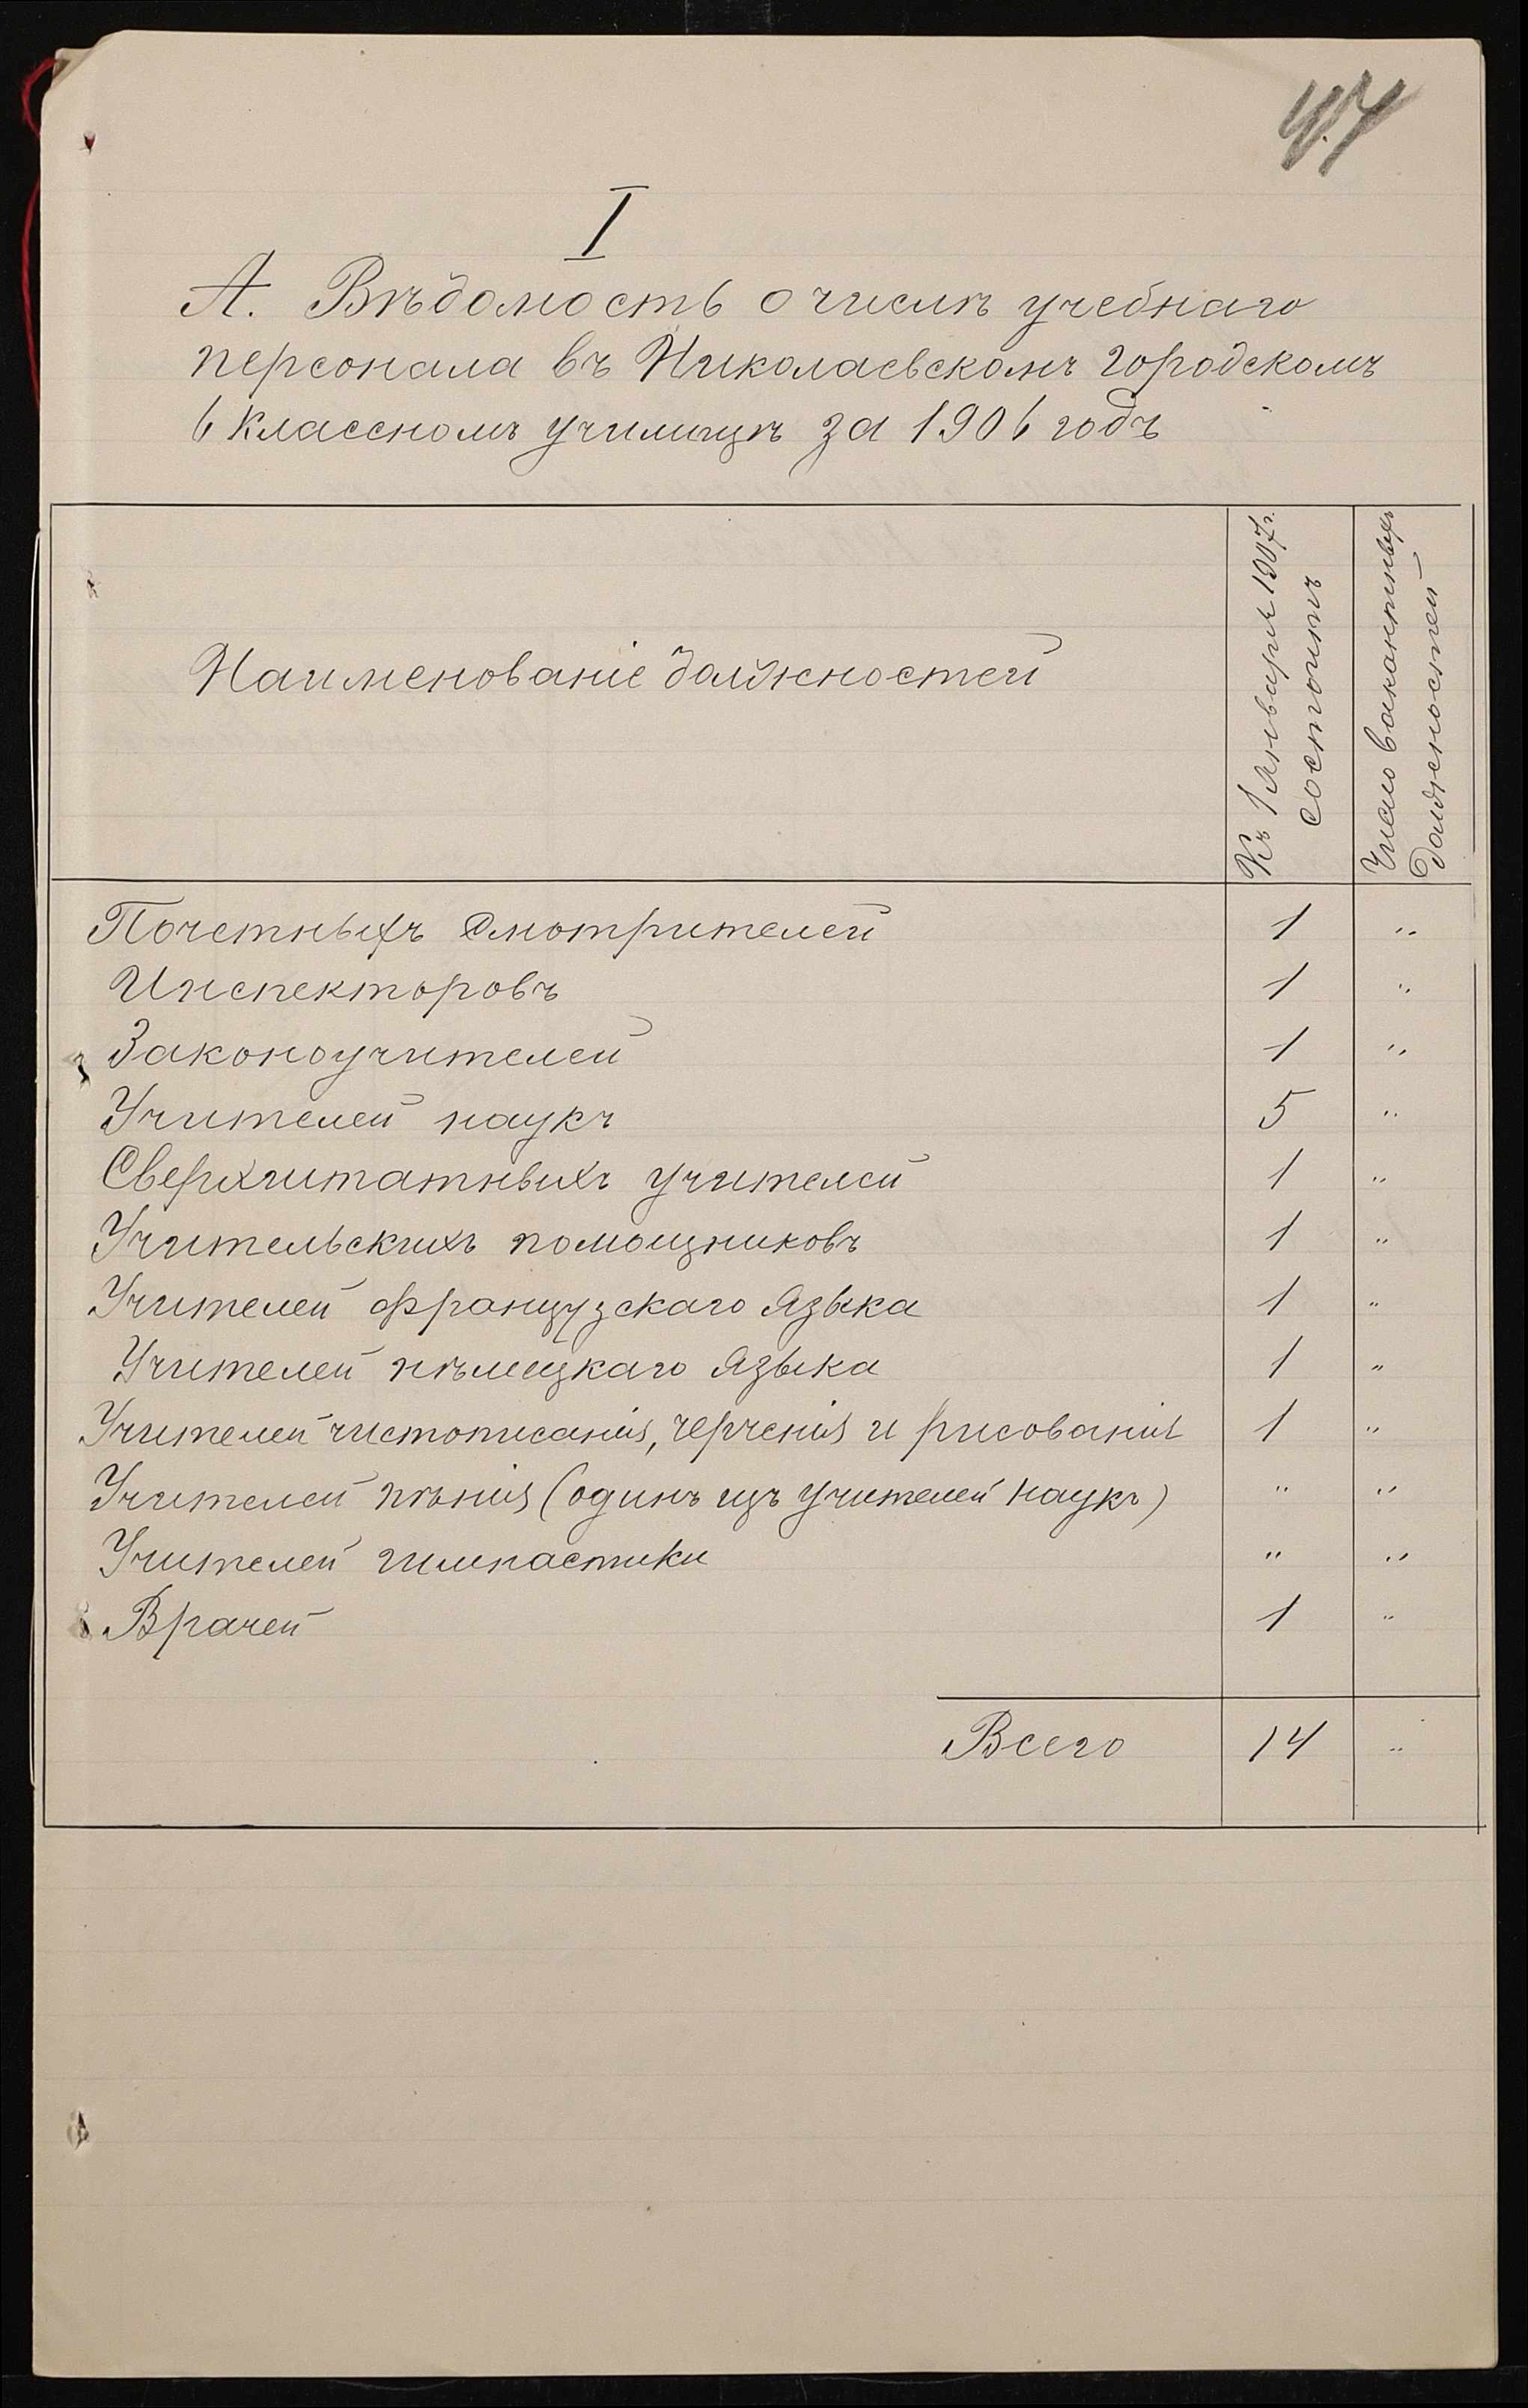 47
I
А. Вѣдомость о числѣ учебнаго
персонала въ Николаевскомъ городскомъ
6 классномъ училищѣ за 1906 годъ
Наименованіе должностей
Къ 1 Января 1907 г.
состоитъ
Число вакантныхъ
должностей
Почетныхъ Смотрителей 1 "
Инспекторовъ 1 "
Законоучителей 1 "
Учителей наукъ 5 "
Сверхштатныхъ учителей 1 "
Учительскихъ помощниковъ 1 "
Учителей французскаго языка 1 "
Учителей нѣмецкаго языка 1 "
Учителей чистописанія, черченія и рисованія 1 "
Учителей пѣнія (одинъ изъ учителей наукъ) " "
Учителей гимнастики " "
Врачей 1 "
Всего 14 "